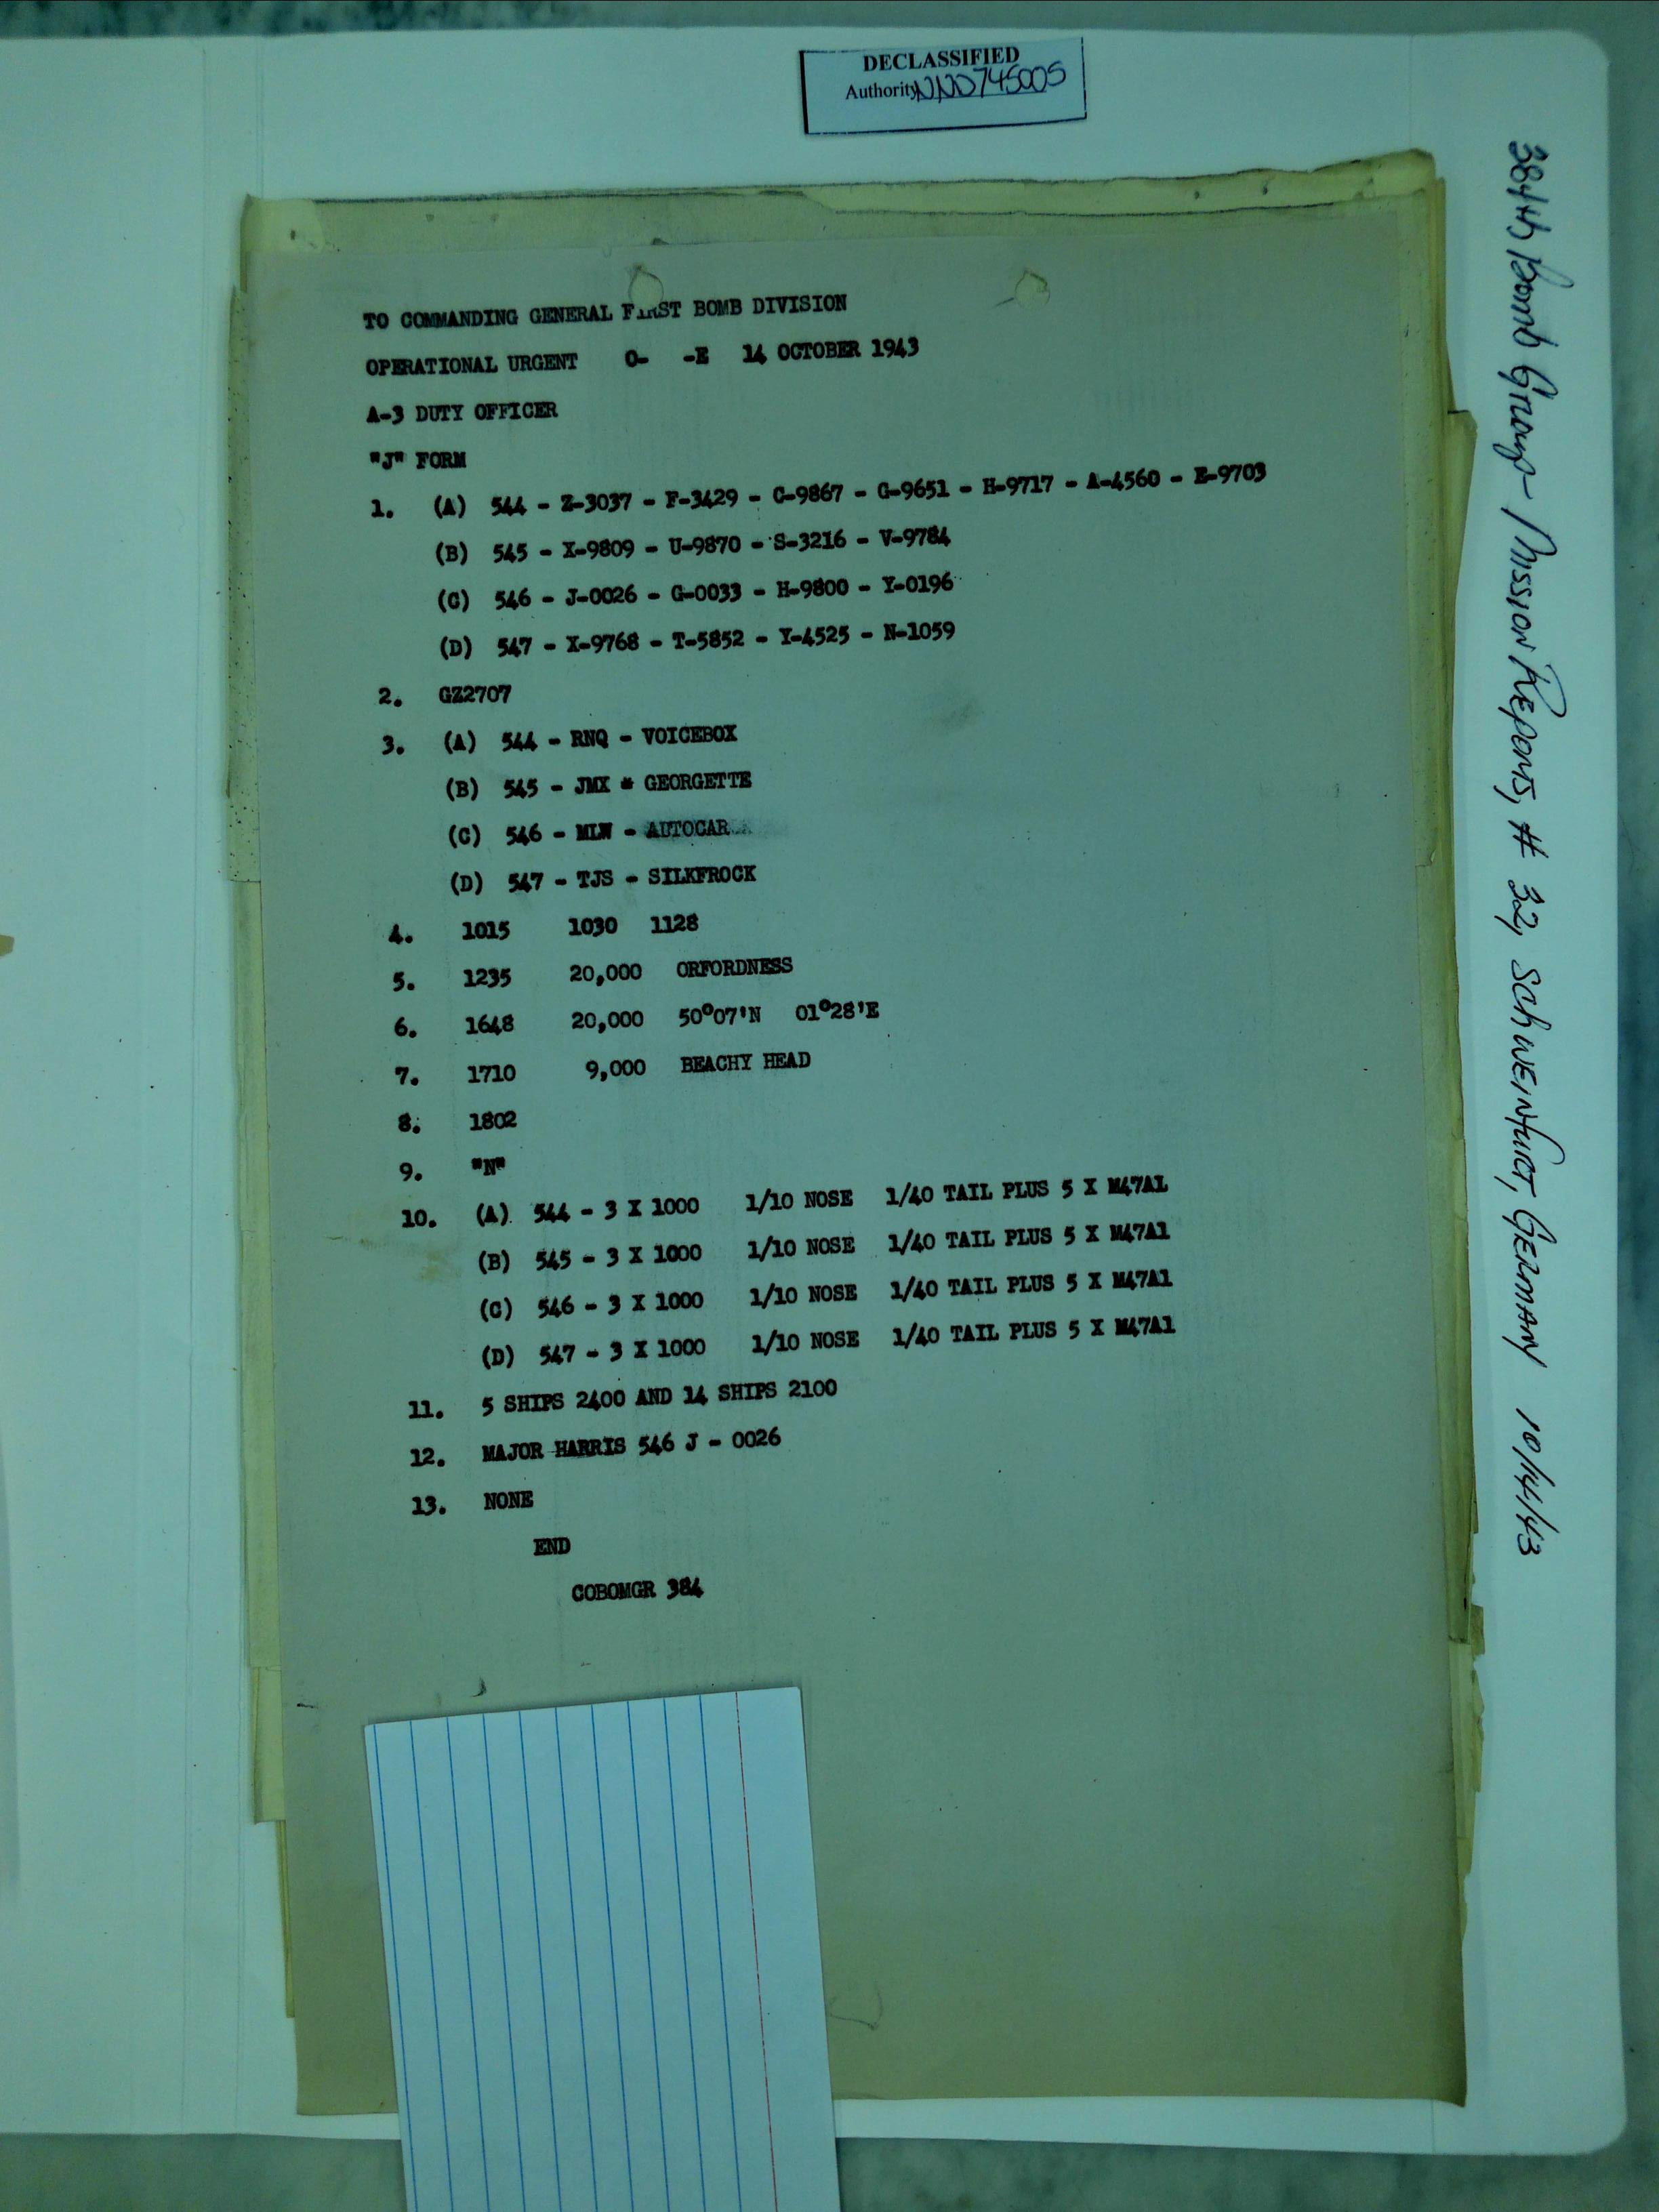 DECLASSIFIED
Authority NND745005
TO COMMANDING GENERAL FIRST BOMB DIVISION
OPERATIONAL URGENT O- -E 14 OCTOBER 1943
A-3 DUTY OFFICER
"J" FORM
1. (A) 544 - Z-3037 - F-3429 - C-9867 - G-9651 - H-9717 - A-4560 - E-9703
(B) 545 - X-9809 - U-9870 - S-3216 - V-9784
(C) 546 - J-0026 - G-0033 - H-9800 - Y-0196
(D) 547 - X-9768 - T-5852 - Y-4525 - N-1059
2. GZ2707
3. (A) 544 - RNQ - VOICEBOX
(B) 545 - JMX * GEORGETTE
(C) 546 - MLW - AUTOCAR
(D) 547 - TJS - SILKFROCK
4. 1015 1030 1128
5. 1235 20,000 ORFORDNESS
6. 1648 20,000 50°07'N 01°28'E
7. 1710 9,000 BEACHY HEAD
8. 1802
9. "N"
10. (A) 544 - 3 X 1000 1/10 NOSE 1/40 TAIL PLUS 5 X M47A1
(B) 545 - 3 X 1000 1/10 NOSE 1/40 TAIL PLUS 5 X M47A1
(C) 546 - 3 X 1000 1/10 NOSE 1/40 TAIL PLUS 5 X M47A1
(D) 547 - 3 X 1000 1/10 NOSE 1/40 TAIL PLUS 5 X M47A1
11. 5 SHIPS 2400 AND 14 SHIPS 2100
12. MAJOR HARRIS 546 J - 0026
13. NONE
END
COBOMGR 384
384th Bomb Group - Mission Reports, # 32, Schweinfurt, Germany 10/14/43